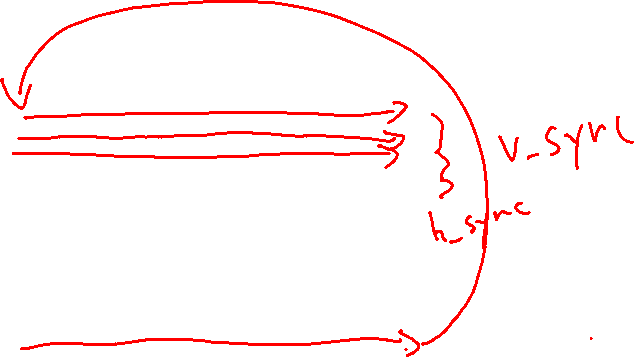 v_sync
h_sync